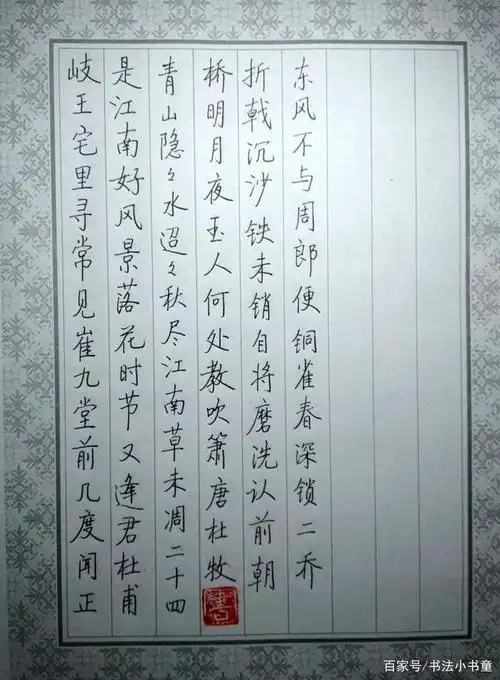 岐王宅里寻常见崔九堂前几度闻正
是江南好风景落花时节又逢君杜甫
青山隐々水迢々秋尽江南草未凋二十四
桥明月夜玉人何处教吹箫唐杜牧
折戟沉沙铁未销自将磨洗认前朝
东风不与周郎便铜雀春深锁二乔
百家号/书法小书童